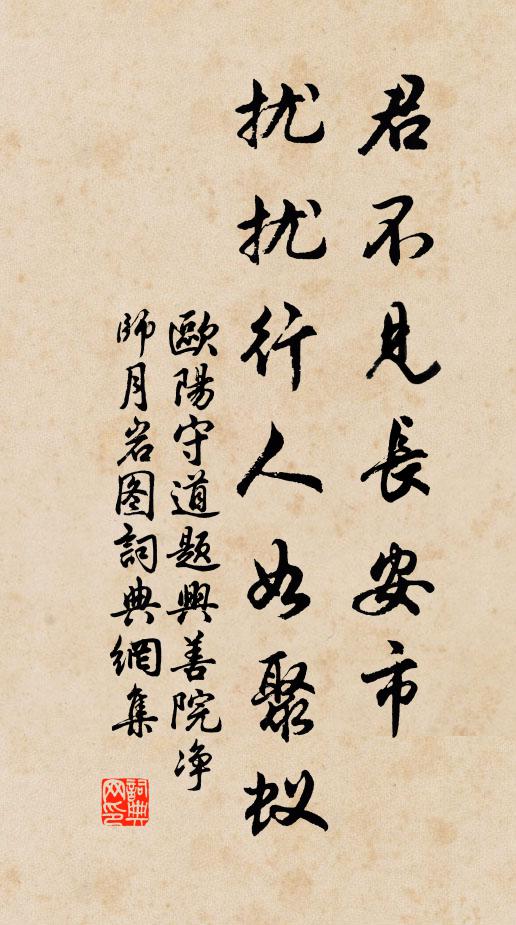 君不見長安市
扰扰行人如聚蚁
歐陽守道題興善院净
師月岩图詞典網集
詞典
网印